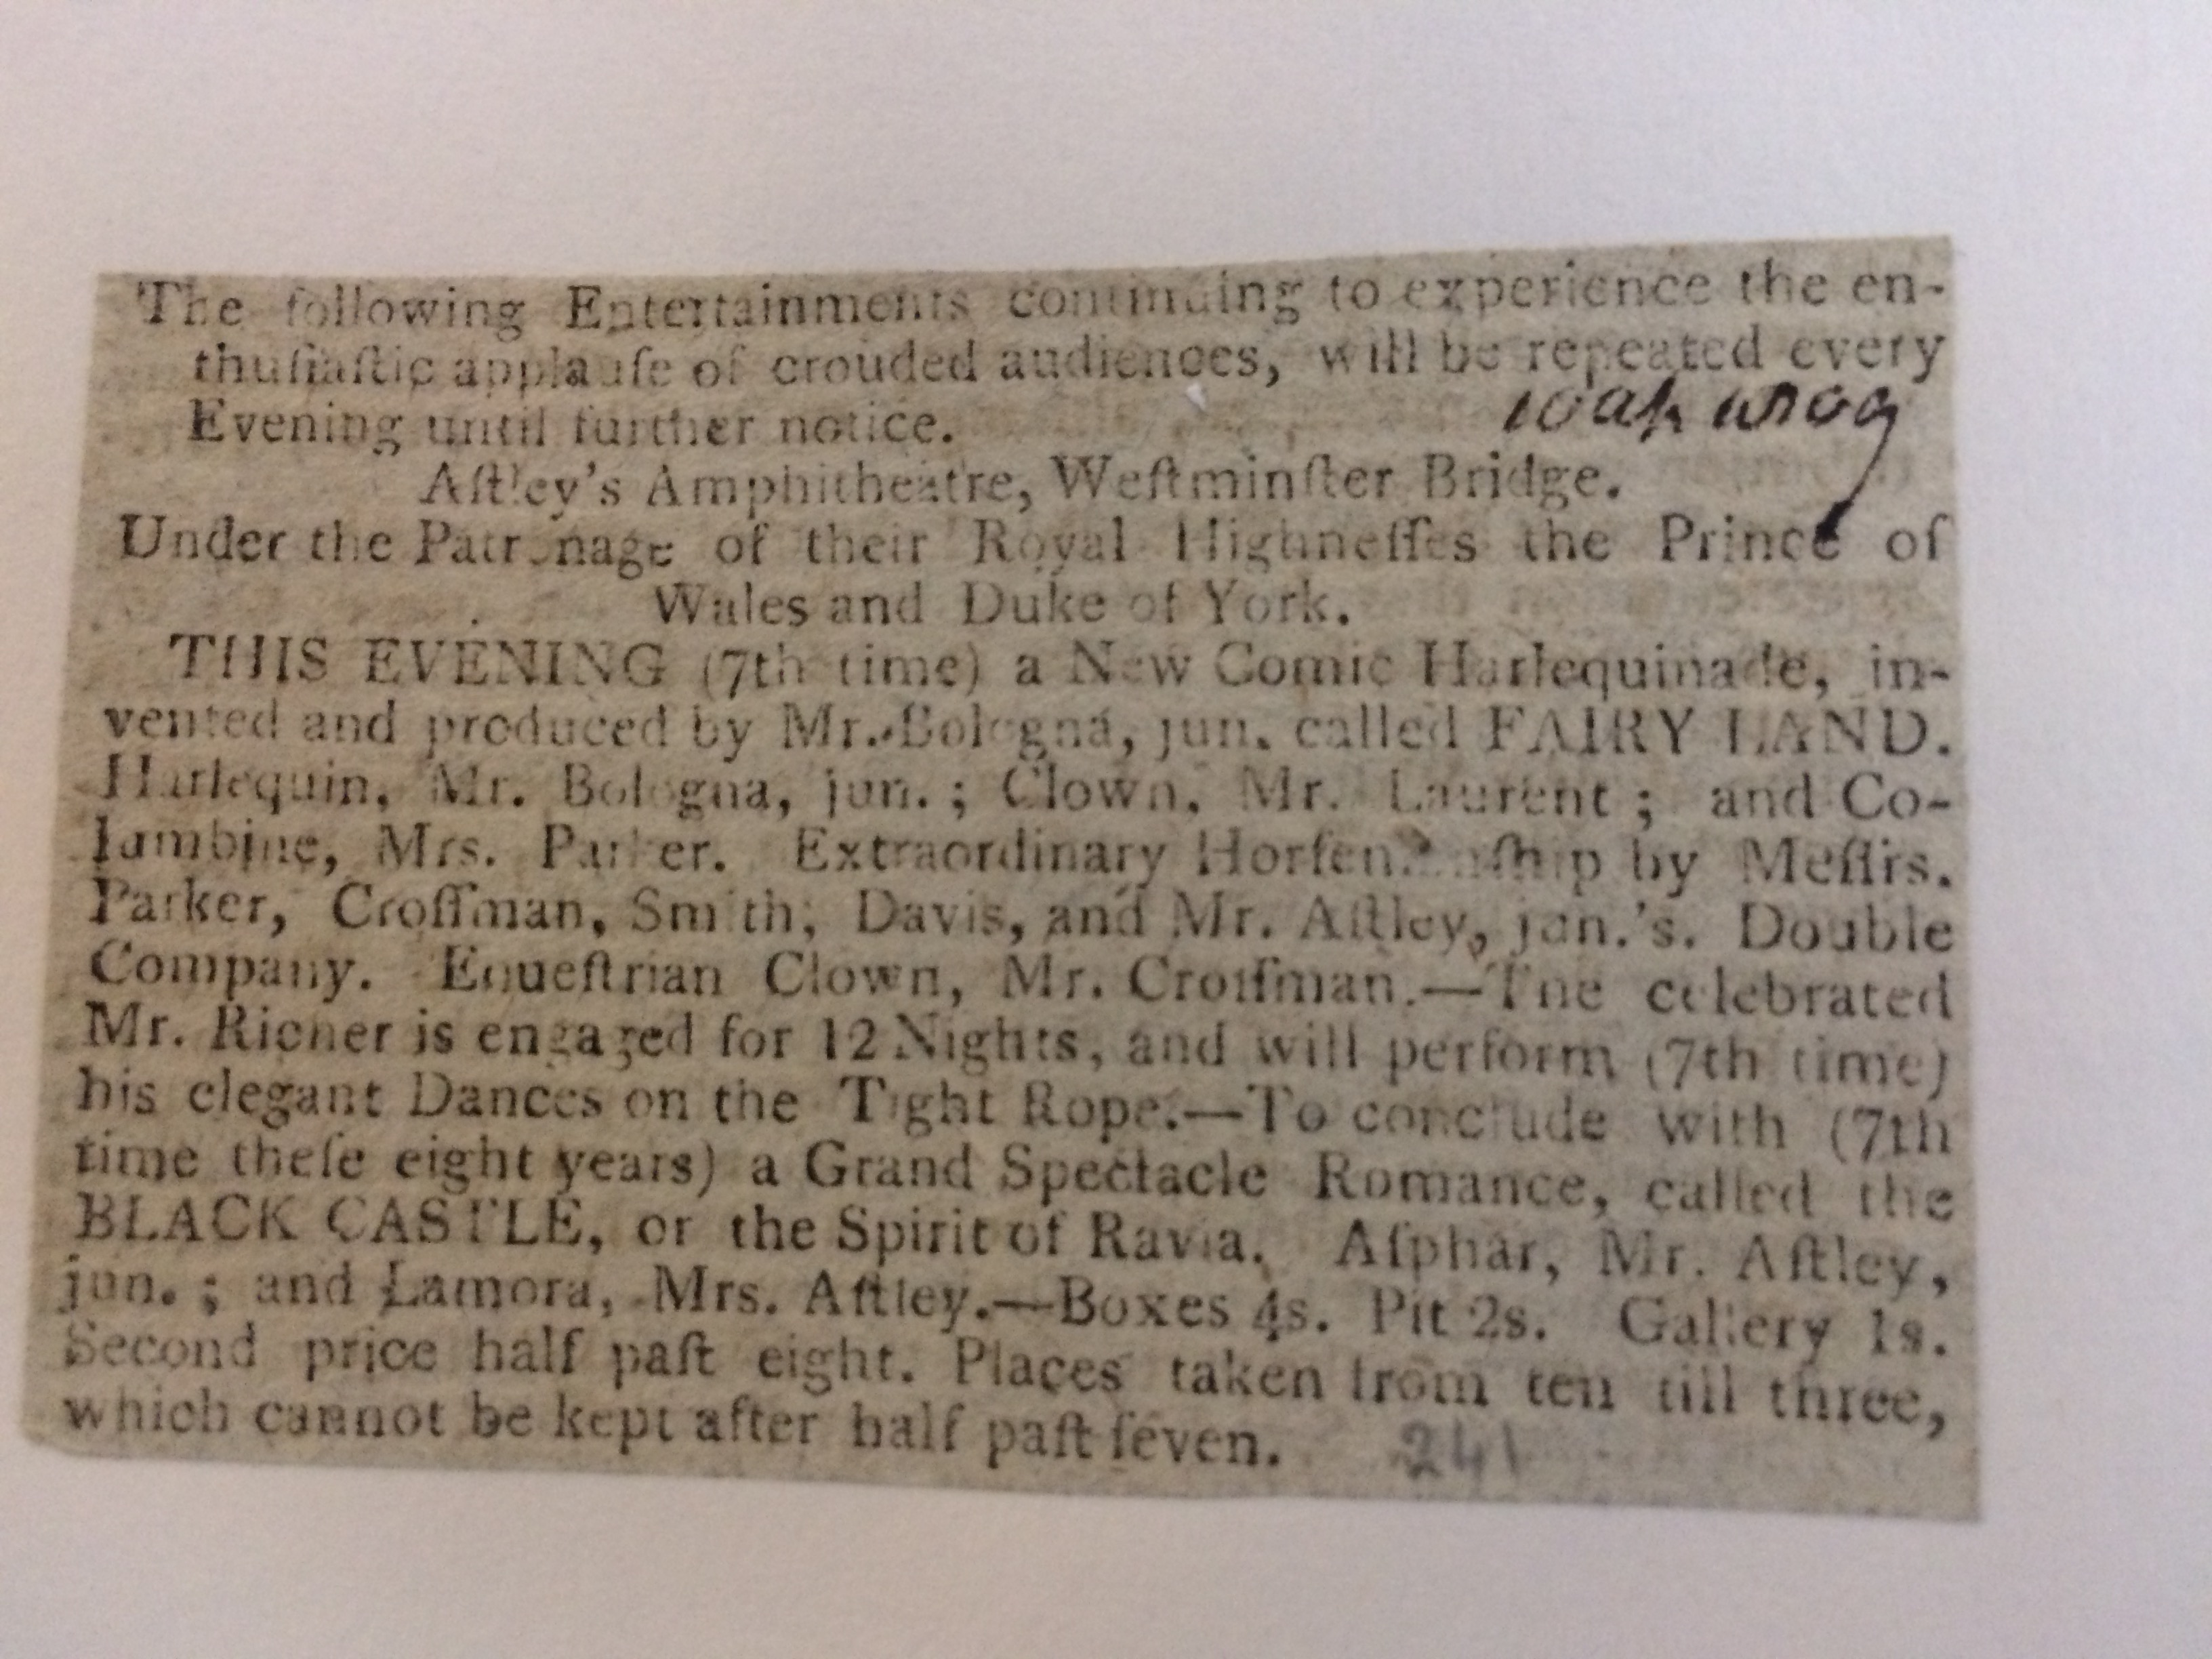 The following Entertainments continuing to experience the en-
thuſiaſtic applauſe of crouded audiences, will be repeated every
Evening until further notice.
Aſtley's Amphitheatre, Weſtminſter Bridge.
Under the Patronage of their Royal Highneſſes the Prince of
Wales and Duke of York.
THIS EVENING (7th time) a New Comic Harlequinade, in-
vented and produced by Mr. Bologna, jun. called FAIRY LAND.
Harlequin, Mr. Bologna, jun.; Clown, Mr. Laurent; and Co-
lumbine, Mrs. Parker. Extraordinary Horſemanſhip by Meſſrs.
Parker, Croſſman, Smith, Davis, and Mr. Aſtley, jun.'s. Double
Company. Equeſtrian Clown, Mr. Croſſman.—The celebrated
Mr. Richer is engaged for 12 Nights, and will perform (7th time)
his elegant Dances on the Tight Rope.—To conclude with (7th
time theſe eight years) a Grand Spectacle Romance, called the
BLACK CASTLE, or the Spirit of Ravia. Aſphar, Mr. Aſtley,
jun.; and Lamora, Mrs. Aſtley.—Boxes 4s. Pit 2s. Gallery 1s.
Second price half paſt eight. Places taken from ten till three,
which cannot be kept after half paſt ſeven. 241